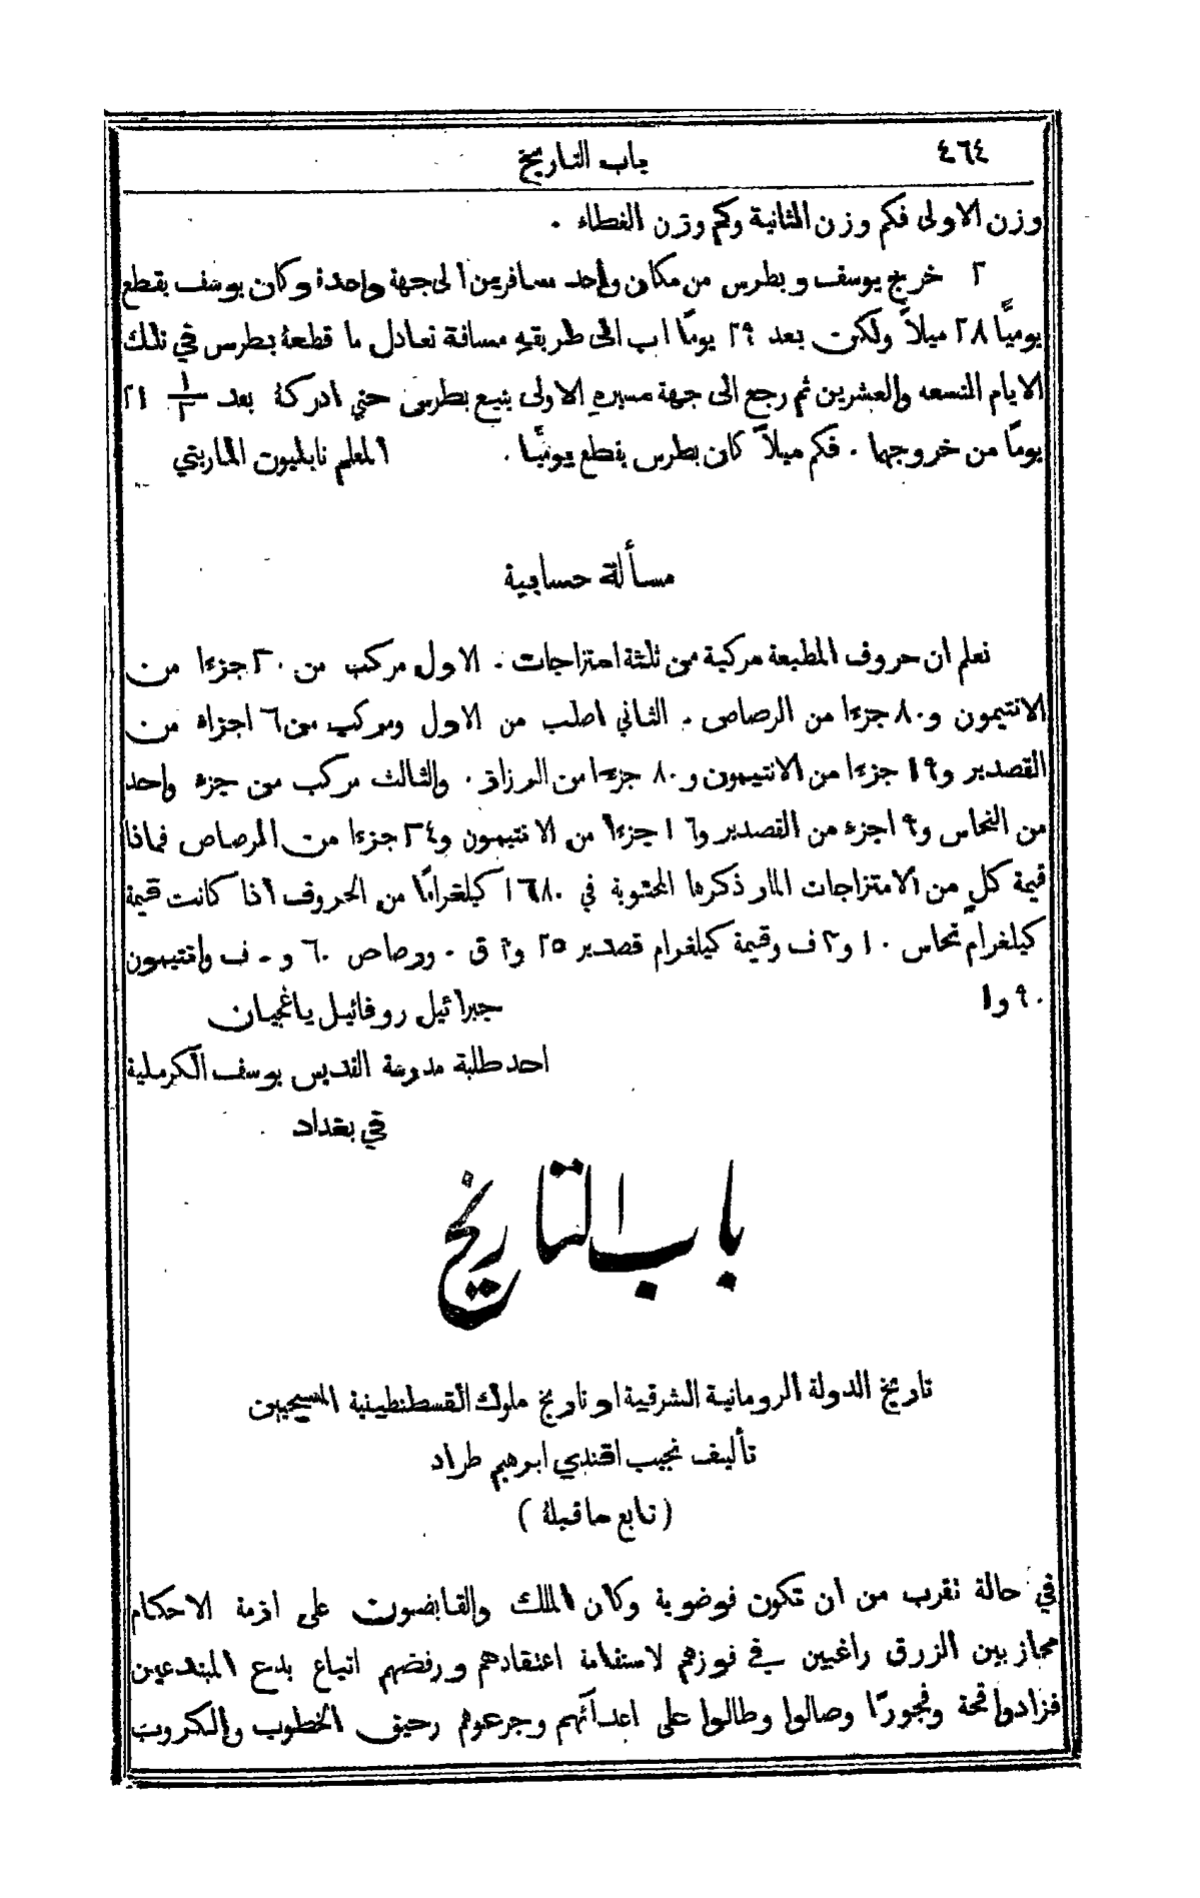 ٤٦٤ باب التاريخ
وزن الاولى فكم وزن الثانية وكم وزن الغطاء .
٢ خرج يوسف وبطرس من مكان واحد مسافرين الى جهة واحدة وكان يوسف يقطع
يوميًا ٢٨ ميلاً ولكن بعد ٢٩ يومًا اب الى طريقه مسافة تعادل ما قطعهُ بطرس في تلك
الايام التسعه والعشرين ثم رجع الى جهة مسيره الاولى يتبع بطرس حتى ادركهُ بعد
يومًا من خروجها . فكم ميلاً كان بطرس يقطع يوميًا . المعلم نابليون الماريني
مسألة حسابية
نعلم ان حروف المطبعة مركبة من ثلثة امتزاجات . الاول مركب من ٢٠ جزءا من
الانتيمون و ٨٠ جزءا من الرصاص . الثاني اصلب من الاول ومركب من ٦ اجزاء من
القصدير و ١٩ جزءا من الانتيمون و ٨٠ جزءا من الرزاق . والثالث مركب من جزء واحد
من النحاس و ٩ اجزء من القصدير و ١٦ جزءا من الانتيمون و ٣٤ جزءا من الرصاص فماذا
قيمة كل من الامتزاجات المار ذكرها المحتوية في ١٦٨٠ كيلغرامًا من الحروف اذا كانت قيمة
كيلغرام نحاس ١٠ و ٣ ف وقيمة كيلغرام قصدير ٢٥ و ٢ ق . ورصاص ٦٠ و . ف وانتيمون
٩٠ و ١
جبرائيل روفائيل ياغجيان
احد طلبة مدرسة القديس يوسف الكرملية
في بغداد
باب التاريخ
تاريخ الدولة الرومانية الشرقية او تاريخ ملوك القسطنطينية المسيحيين
تأليف نجيب افندي ابرهيم طراد
( تابع ما قبلهُ )
في حالة تقرب من ان تكون فوضوية وكان الملك والقابضون على ازمة الاحكام
مجازبين الزرق راغبين في فوزهم لاستقامة اعتقادهم ورفضهم اتباع بدع المبتدعين
فزادوا قحة وفجورًا وصالوا وطالوا على اعدآئهم وجرعوهم رحيق الخطوب والكروب